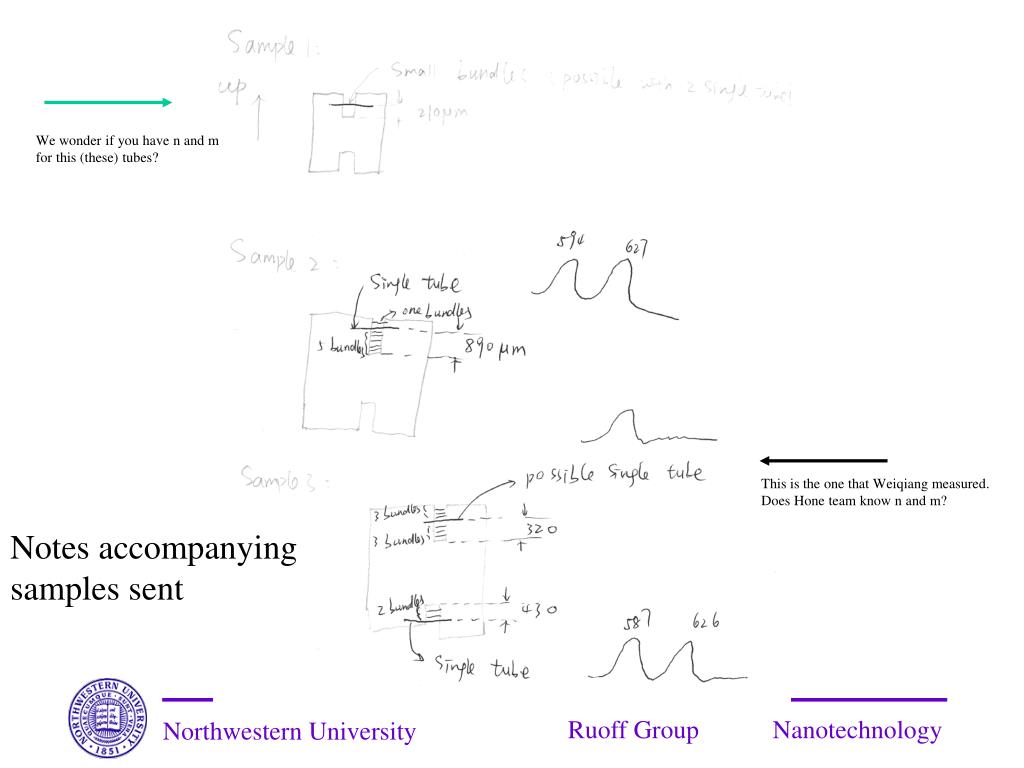 Sample 1:
up
Small bundles possible with 2 single
210μm
We wonder if you have n and m
for this (these) tubes?
Sample 2 :
594 627
Single tube
one bundles
5 bundles
890 μm
Sample 3 :
possible Single tube
This is the one that Weiqiang measured.
Does Hone team know n and m?
3 bundles
320
3 bundles
Notes accompanying
samples sent
2 bundles
430
587 626
Single tube
NORTHWESTERN UNIVERSITY
1851
Northwestern University
Ruoff Group
Nanotechnology